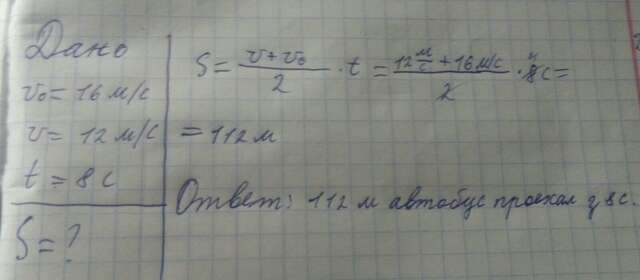 Дано
v₀ = 16 м/с
v = 12 м/с
t = 8 с
S = ?
S = (v + v₀)/2 · t = (12 м/с + 16 м/с)/2 · 8 с =
= 112 м
Ответ: 112 м автобус проехал з 8 с.